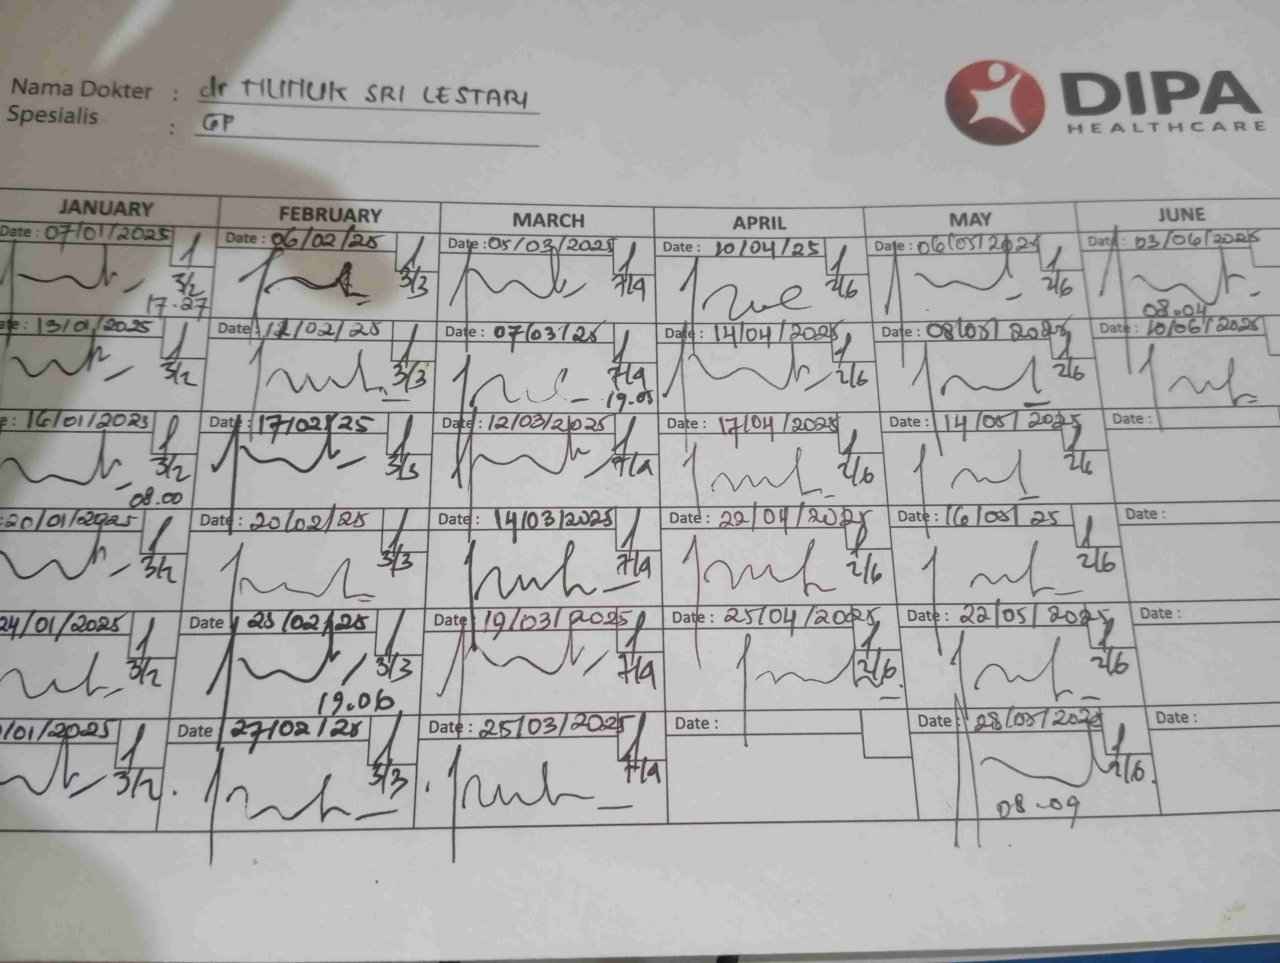 Nama Dokter : dr TITITUK SRI LESTARI
Spesialis : GP
DIPA
HEALTHCARE
JANUARY FEBRUARY MARCH APRIL MAY JUNE
Date: 07/01/2025 Date: 06/02/25 Date: 05/03/2025 Date: 10/04/25 Date: 06/05/2025 Date: 03/06/2025
3/2 3/3 7/4 2/6 2/6
17.27 08.04
13/01/2025 Date: 12/02/25 Date: 07/03/25 Date: 14/04/2025 Date: 08/05/2025 Date: 10/06/2025
3/2 3/3 7/4 2/6 2/6
19.05
16/01/2025 Date: 17/02/25 Date: 12/03/2025 Date: 17/04/2025 Date: 14/05/2025 Date:
3/2 3/3 7/4 2/6 2/6
08.00
20/01/2025 Date: 20/02/25 Date: 14/03/2025 Date: 22/04/2025 Date: 16/05/25 Date:
3/2 3/3 7/4 2/6 2/6
24/01/2025 Date 23/02/25 Date: 19/03/2025 Date: 25/04/2025 Date: 22/05/2025 Date:
3/2 3/3 7/4 2/6 2/6
19.06
/01/2025 Date 27/02/25 Date: 25/03/2025 Date: Date: 28/05/2025 Date:
3/2 3/3 7/4 2/6
08.09